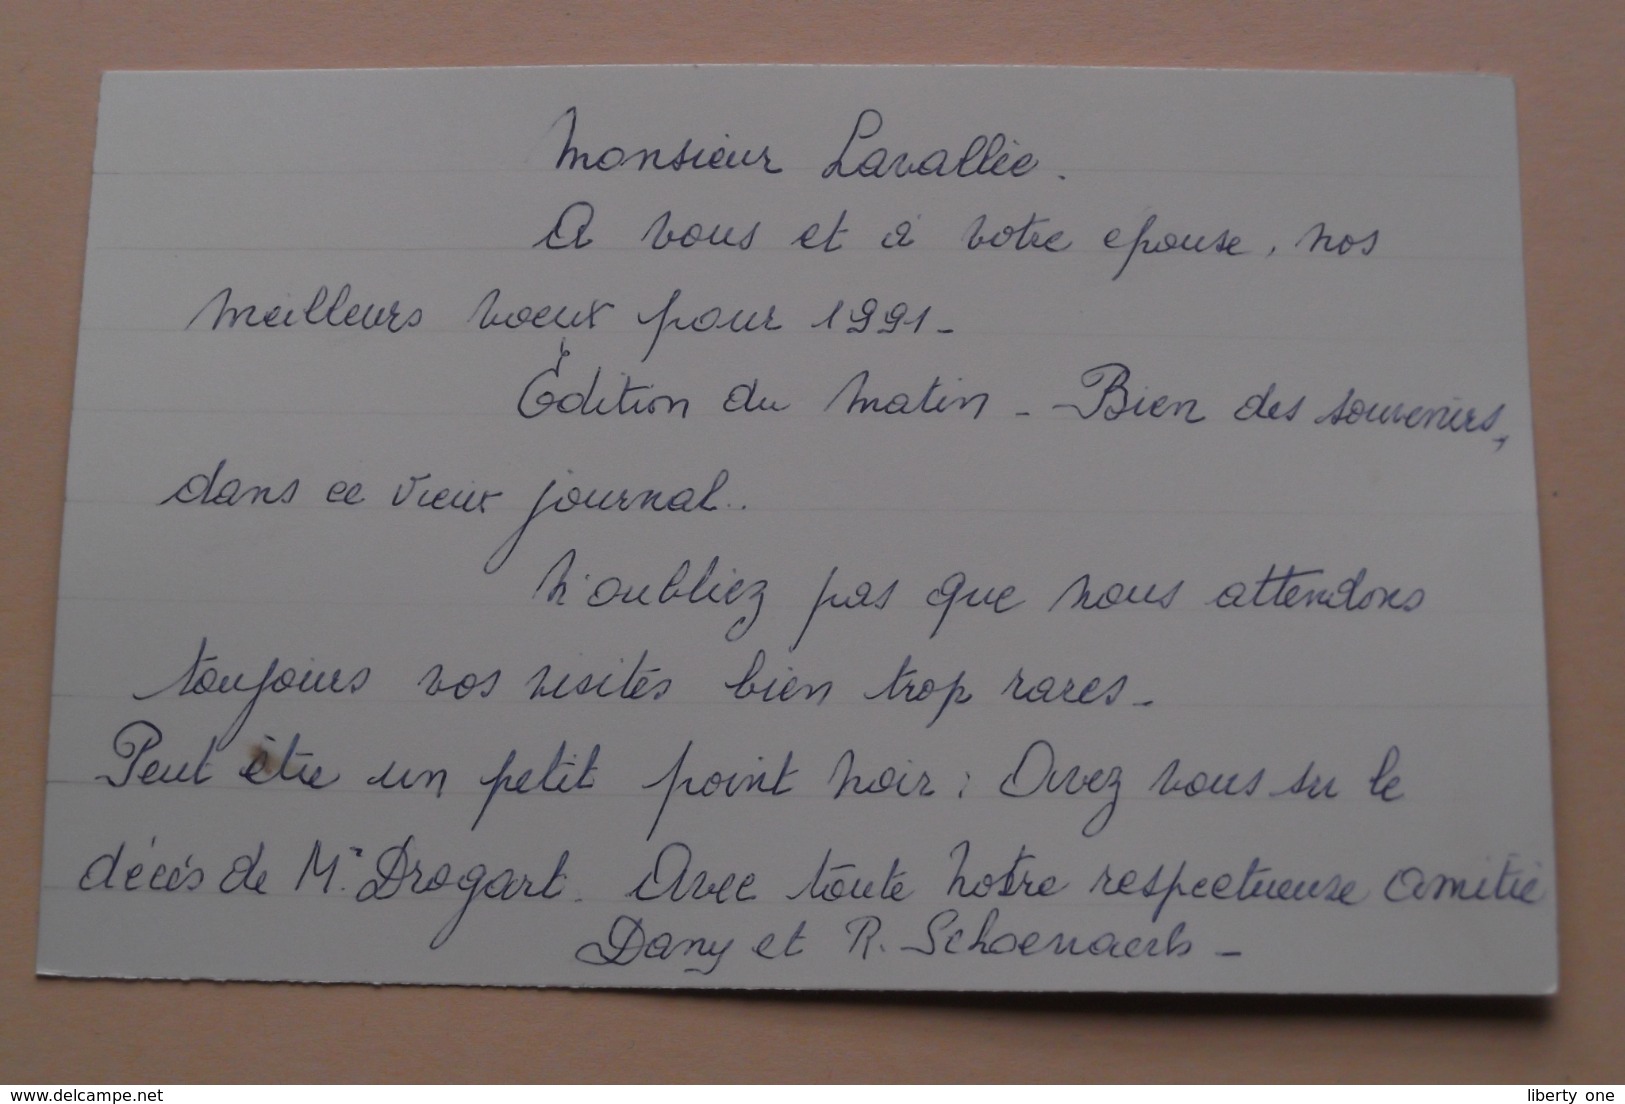 Monsieur Lavallée.
A vous et à votre epouse, nos
meilleurs voeux pour 1991-
Édition du matin - Bien des souvenirs,
dans ce vieux journal..
N'oubliez pas que nous attendons
toujours vos visites bien trop rares-
Peut être un petit point noir: Avez vous su le
décès de Mr. Drogart. Avec toute notre respectueuse amitié
Dany et R. Schoenaerts-
www.delcampe.net
liberty one